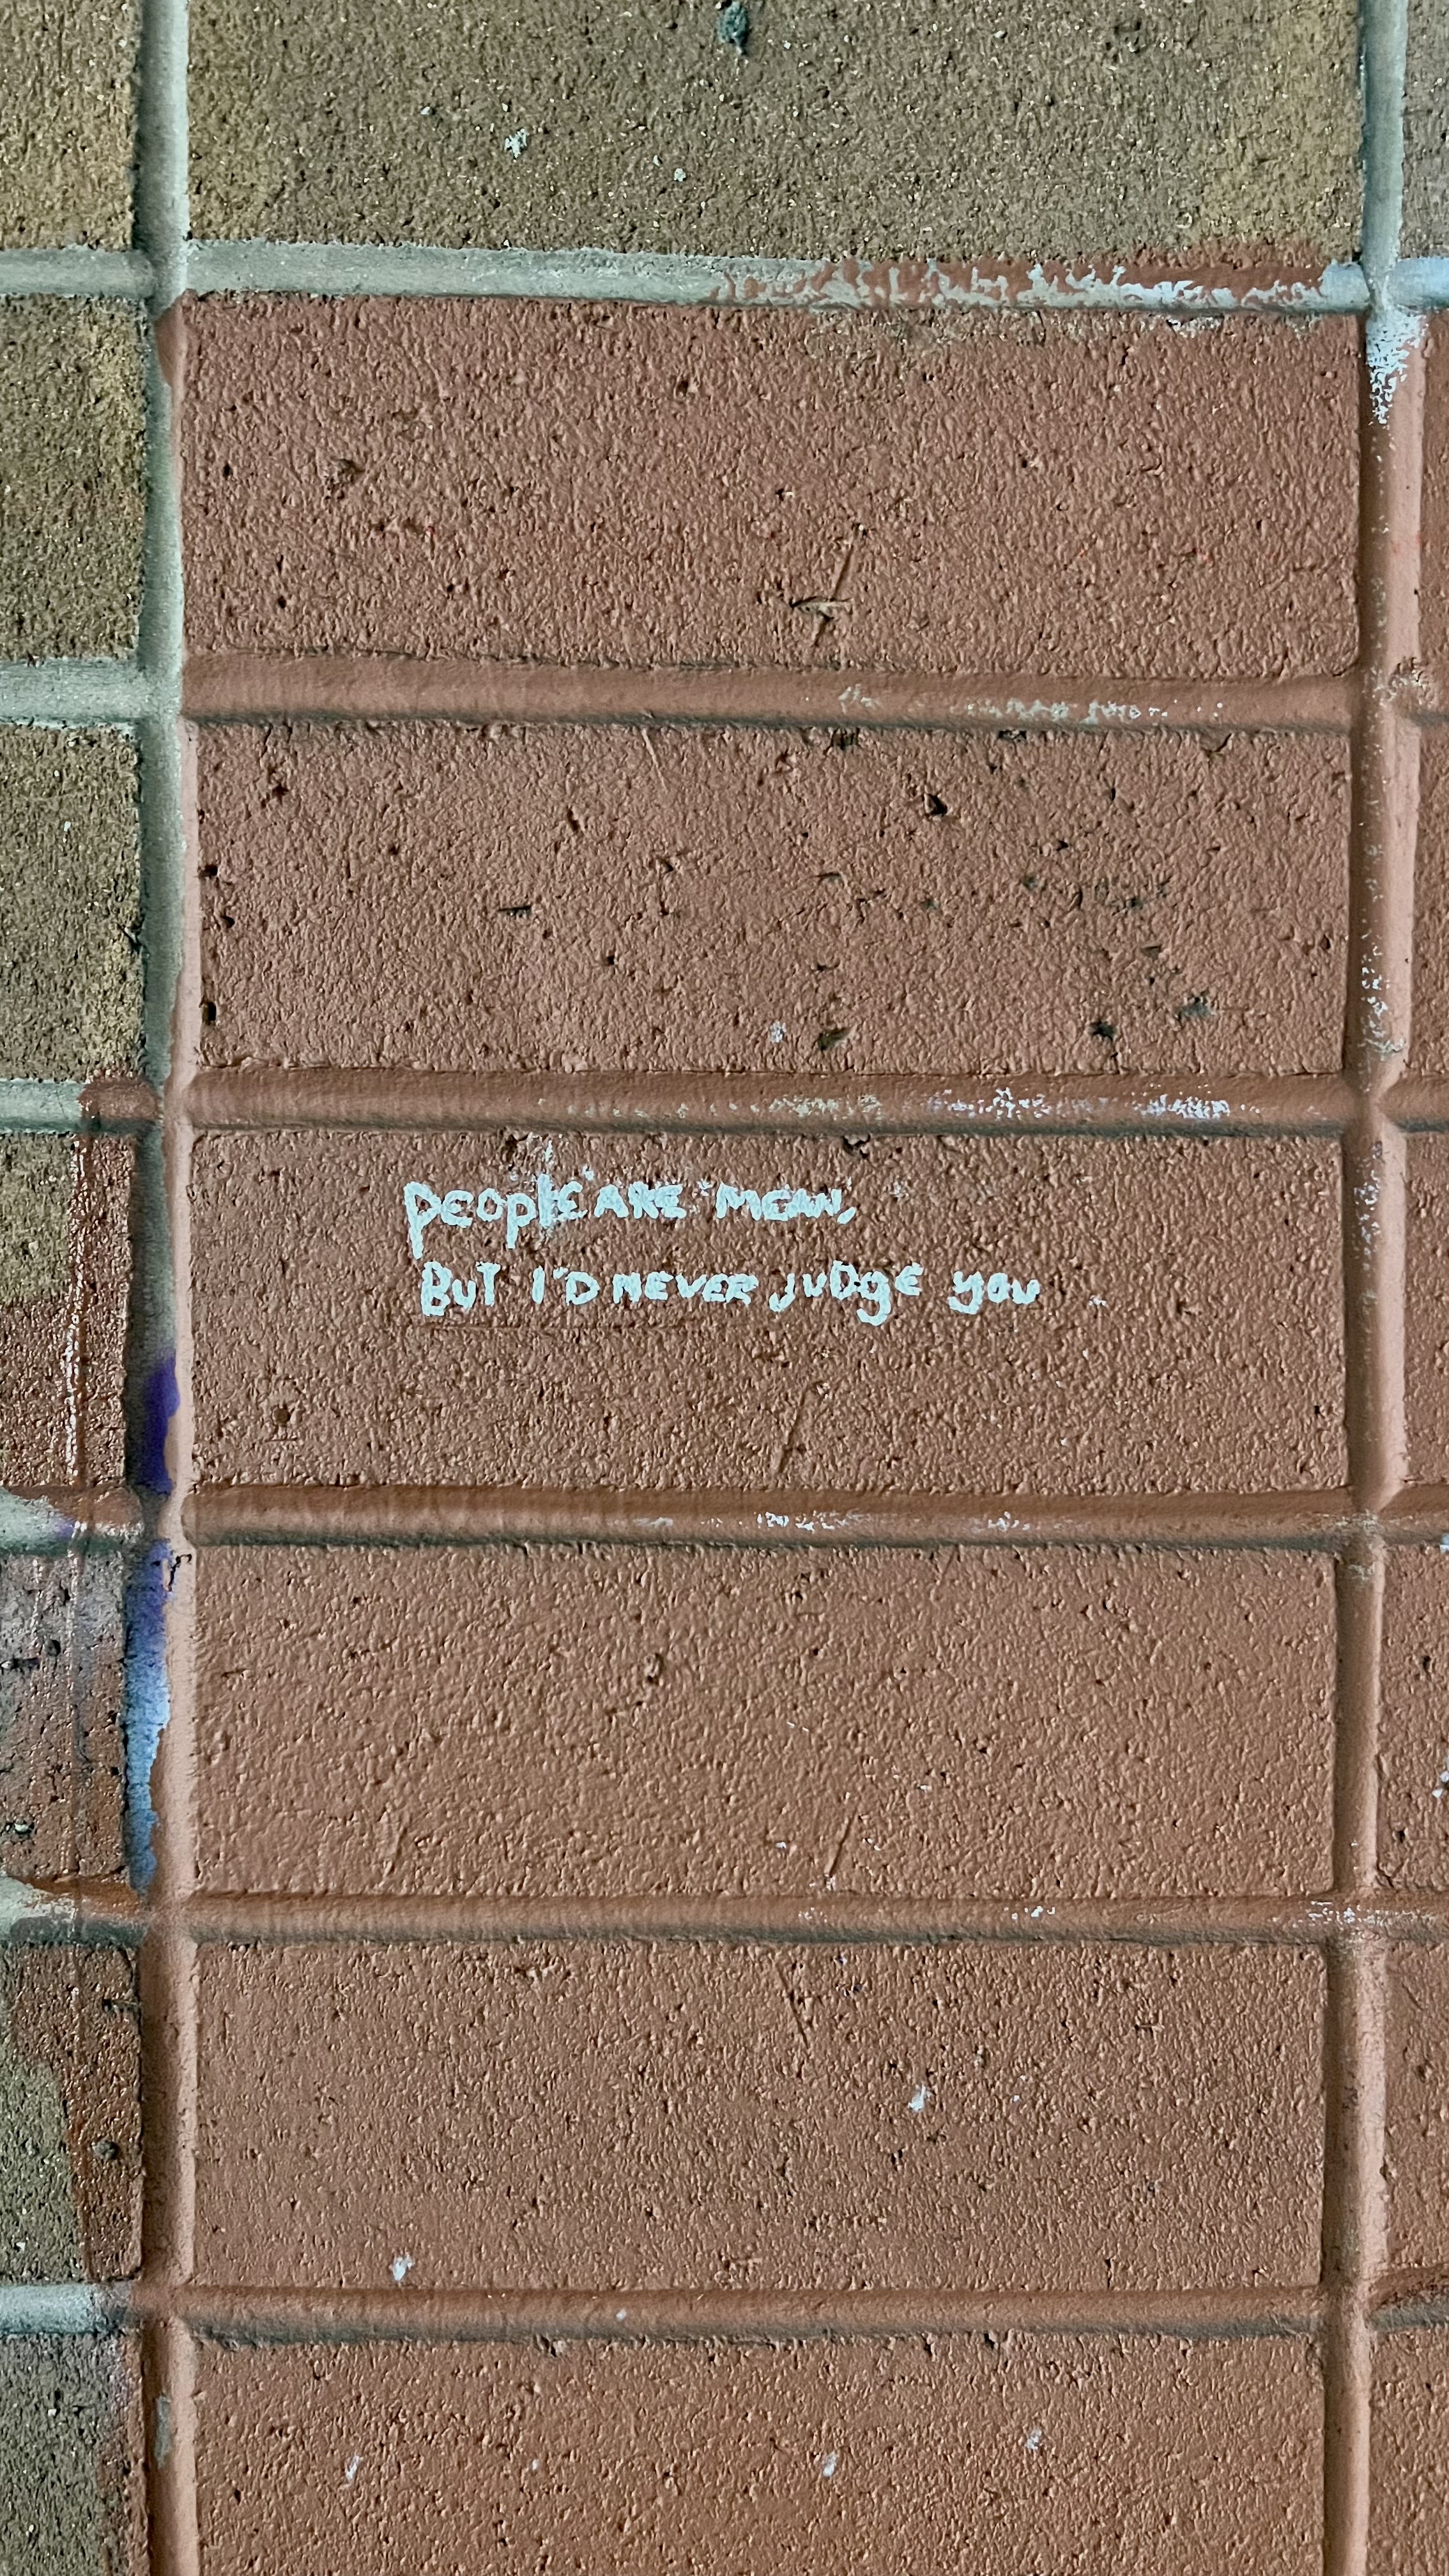 pEOplE ARE MEAN,
BUT I'D NEVER jUDgE yOU